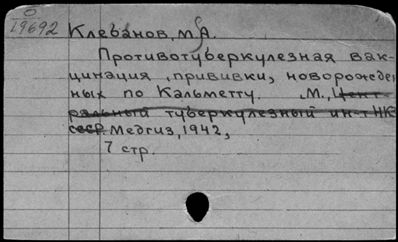 О
19692 Клебанов, М.А.
Противотуберкулезная вак-
цинация (прививки) новорожден
ных по Кальметту. М., Цент-
ральный туберкулезный ин-т НК
СССР. Медгиз, 1942,
7 стр.